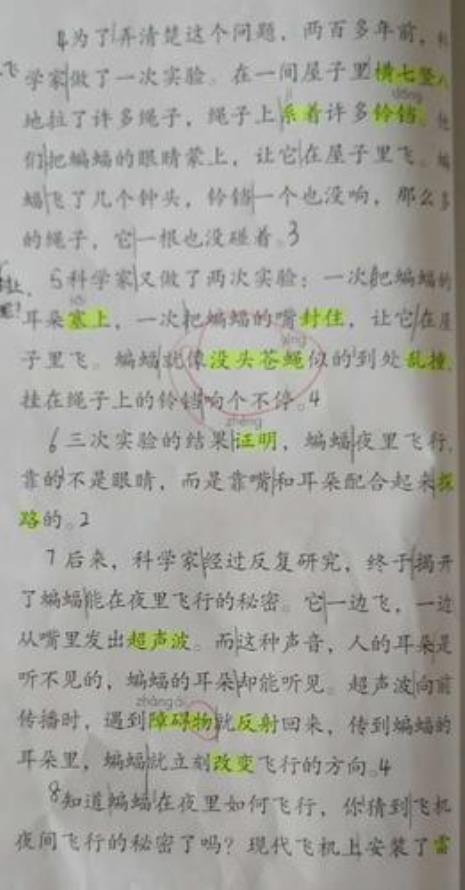 4为了弄清楚这个问题，两百多年前，科
飞
学家做了一次实验。在一间屋子里横七竖八
dāng
地拉了许多绳子，绳子上系着许多铃铛。他
们把蝙蝠的眼睛蒙上，让它在屋子里飞。蝙
蝠飞了几个钟头，铃铛一个也没响，那么多
的绳子，它一根也没碰着。3
5科学家又做了两次实验：一次把蝙蝠的
耳朵塞上，一次把蝙蝠的嘴封住，让它在屋
子里飞。蝙蝠就像没头苍蝇似的到处乱撞，
挂在绳子上的铃铛响个不停。4
zhèng
6三次实验的结果证明，蝙蝠夜里飞行，
靠的不是眼睛，而是靠嘴和耳朵配合起来探
路的。2
7后来，科学家经过反复研究，终于揭开
了蝙蝠能在夜里飞行的秘密。它一边飞，一边
从嘴里发出超声波。而这种声音，人的耳朵是
听不见的，蝙蝠的耳朵却能听见。超声波向前
zhàng ài
传播时，遇到障碍物就反射回来，传到蝙蝠的
耳朵里，蝙蝠就立刻改变飞行的方向。4
8知道蝙蝠在夜里如何飞行，你猜到飞机
夜间飞行的秘密了吗？现代飞机上安装了雷